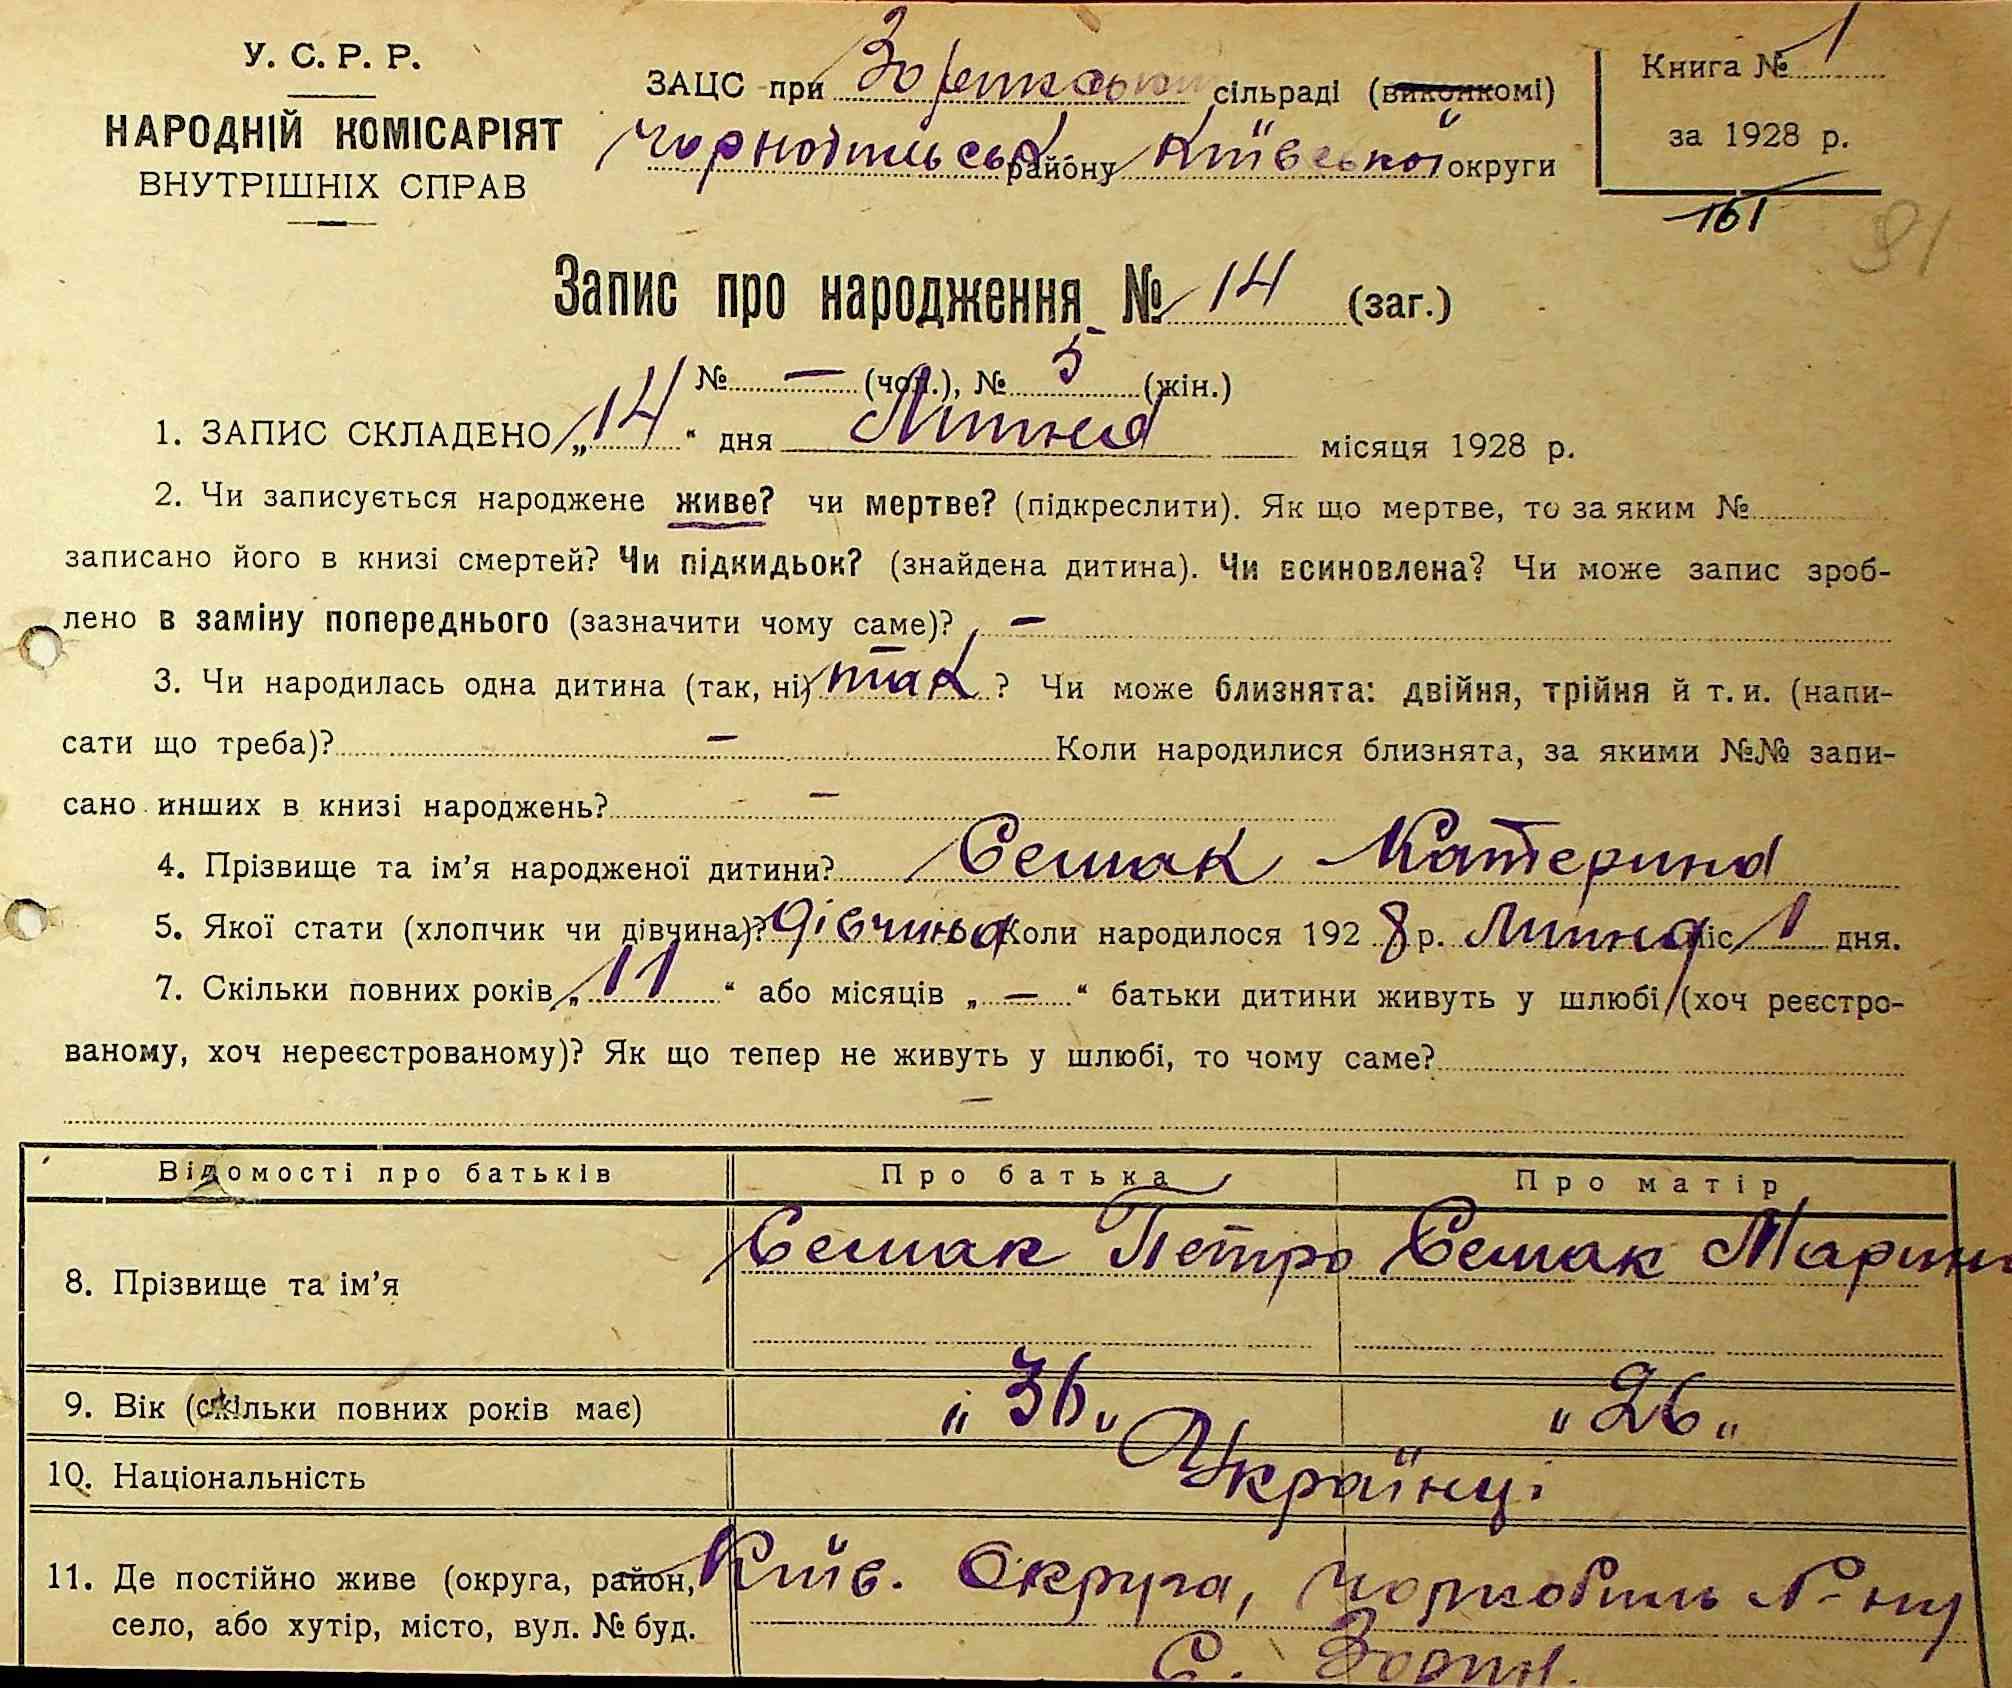 У. С. Р. Р.
НАРОДНІЙ КОМІСАРІЯТ
ВНУТРІШНІХ СПРАВ
ЗАЦС при сільраді (виконкомі)
Чорнобильськ району Київської округи
Книга № 1
за 1928 р.
161
91
Запис про народження № 14 (заг.)
№ — (чол.), № 5 (жін.)
1. ЗАПИС СКЛАДЕНО „14“ дня Липня місяця 1928 р.
2. Чи записується народжене живе? чи мертве? (підкреслити). Як що мертве, то за яким №
записано його в книзі смертей? Чи підкидьок? (знайдена дитина). Чи всиновлена? Чи може запис зроб-
лено в заміну попереднього (зазначити чому саме)? —
3. Чи народилась одна дитина (так, ні) так ? Чи може близнята: двійня, трійня й т. и. (напи-
сати що треба)? — Коли народилися близнята, за якими №№ запи-
сано инших в книзі народжень? —
4. Прізвище та ім’я народженої дитини? Семак Катерина
5. Якої стати (хлопчик чи дівчина)? дівчина Коли народилося 1928 р. Липня міс 1 дня.
7. Скільки повних років „11“ або місяців „—“ батьки дитини живуть у шлюбі (хоч реєстро-
ваному, хоч нереєстрованому)? Як що тепер не живуть у шлюбі, то чому саме?
—
Відомості про батьків Про батька Про матір
8. Прізвище та ім’я Семак Петро Семак Марина
9. Вік (скільки повних років має) „36„ „26„
10. Національність Українці
11. Де постійно живе (округа, район, Київ. Округа, Чорнобиль Р-ну
село, або хутір, місто, вул. № буд. С.